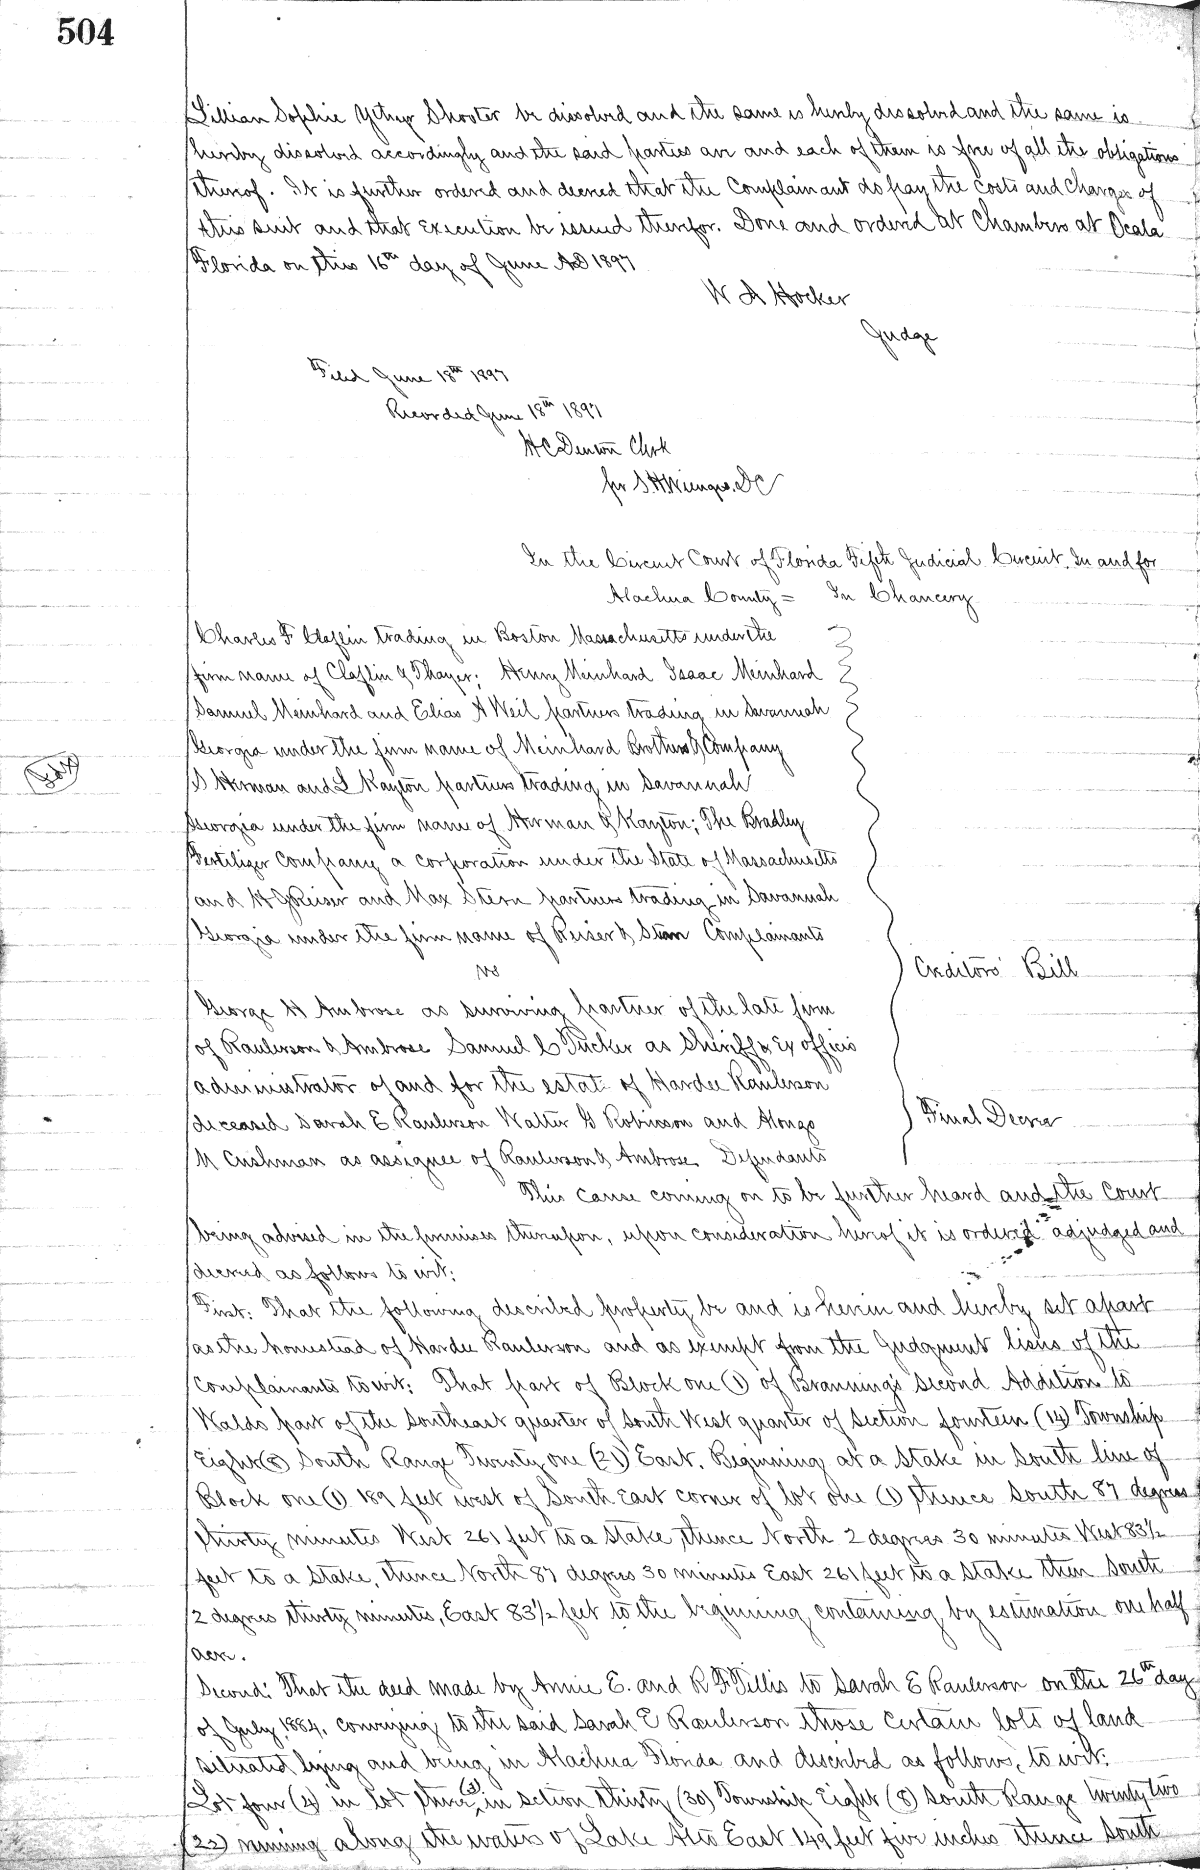 504
Lillian Sophie Shooter be dissolved and the same is hereby dissolved and the same is
hereby dissolved accordingly and the said parties are and each of them is free of all the obligations
thereof. It is further ordered and decreed that the Complainant do pay the costs and charges of
this suit and that Execution be issued therefor. Done and ordered at Chambers at Ocala
Florida on this 16th day of June AD 1897
W A Hocker
Judge
Filed June 18th 1897
Recorded June 18th 1897
H C Denton Clerk
per S. H. Wienges. DC
In the Circuit Court of Florida Fifth Judicial Circuit. In and for
Alachua County = In Chancery
Charles F Claflin trading in Boston Massachusetts under the
firm name of Claflin & Thayer; Henry Meinhard Isaac Meinhard
Samuel Meinhard and Elias A Weil partners trading in Savannah
Georgia under the firm name of Meinhard Brothers & Company
S Herman and L Kayton partners trading in Savannah
Georgia under the firm name of Herman & Kayton; The Bradley
Fertilizer Company a corporation under the State of Massachusetts
and H J Reiser and Max Stern partners trading in Savannah
Georgia under the firm name of Reiser & Stern Complainants
vs
Creditors' Bill
George H Ambrose as surviving partner of the late firm
of Raulerson & Ambrose Samuel C Tucker as Sheriff & Ex officio
administrator of and for the estate of Hardee Raulerson
deceased Sarah E Raulerson Walter G Robinson and Alonzo
M Cushman as assignee of Raulerson & Ambrose Defendants
Final Decree
This cause coming on to be further heard and the Court
being advised in the premises thereupon, upon consideration hereof it is ordered adjudged and
decreed as follows to wit:
First: That the following described property be and is herein and hereby set apart
as the homestead of Hardee Raulerson and as exempt from the Judgment liens of the
complainants to wit: That part of Block one (1) of Branning's Second Addition to
Waldo part of the Southeast quarter of South West quarter of Section fourteen (14) Township
Eight (8) South Range Twenty one (21) East. Beginning at a Stake in South line of
Block one (1) 189 feet west of South East corner of lot one (1) thence South 87 degrees
thirty minutes West 261 feet to a stake, thence North 2 degrees 30 minutes West 83½
feet to a stake, thence North 87 degrees 30 minutes East 261 feet to a stake then South
2 degrees thirty minutes, East 83½ feet to the beginning containing by estimation one half
acre.
Second: That the deed made by Annie E. and R F Tillis to Sarah E Raulerson on the 26th day
of July, 1884, conveying to the said Sarah E Raulerson those certain lots of land
situated lying and being in Alachua Florida and described as follows, to wit:
Lot four (4) in Lot three (3) in section thirty (30) Township Eight (8) South Range twenty two
(22) running along the waters of Lake Alto East 149 feet five inches thence South